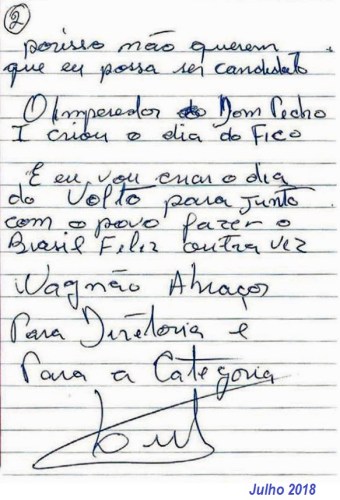 2
porisso não querem
que eu possa ser candidato
O Imperador Dom Pedro
I criou o dia do Fico
E eu vou criar o dia
do Volto para junto
com o povo fazer o
Brasil Feliz outra vez
Wagnão Abraços
Para Diretoria e
Para a Categoria
Julho 2018